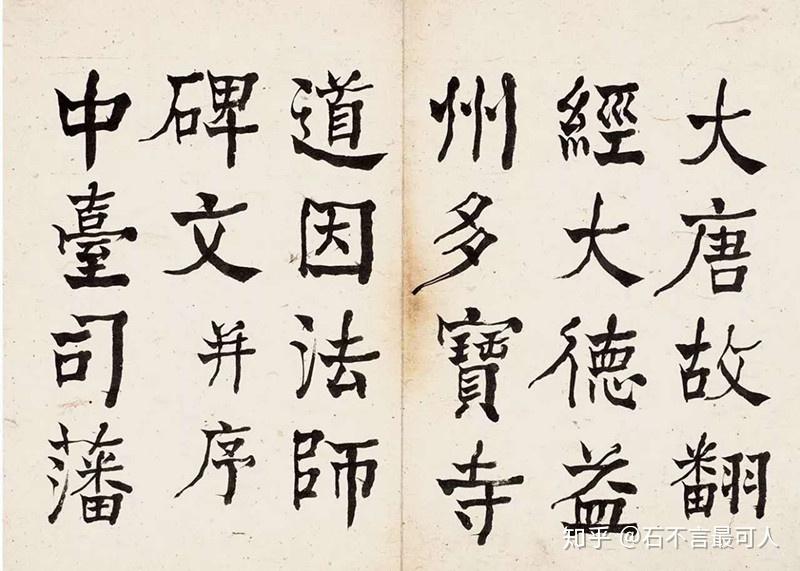 大唐故翻
經大德益
州多寶寺
道因法師
碑文并序
中臺司藩
知乎 @石不言最可人